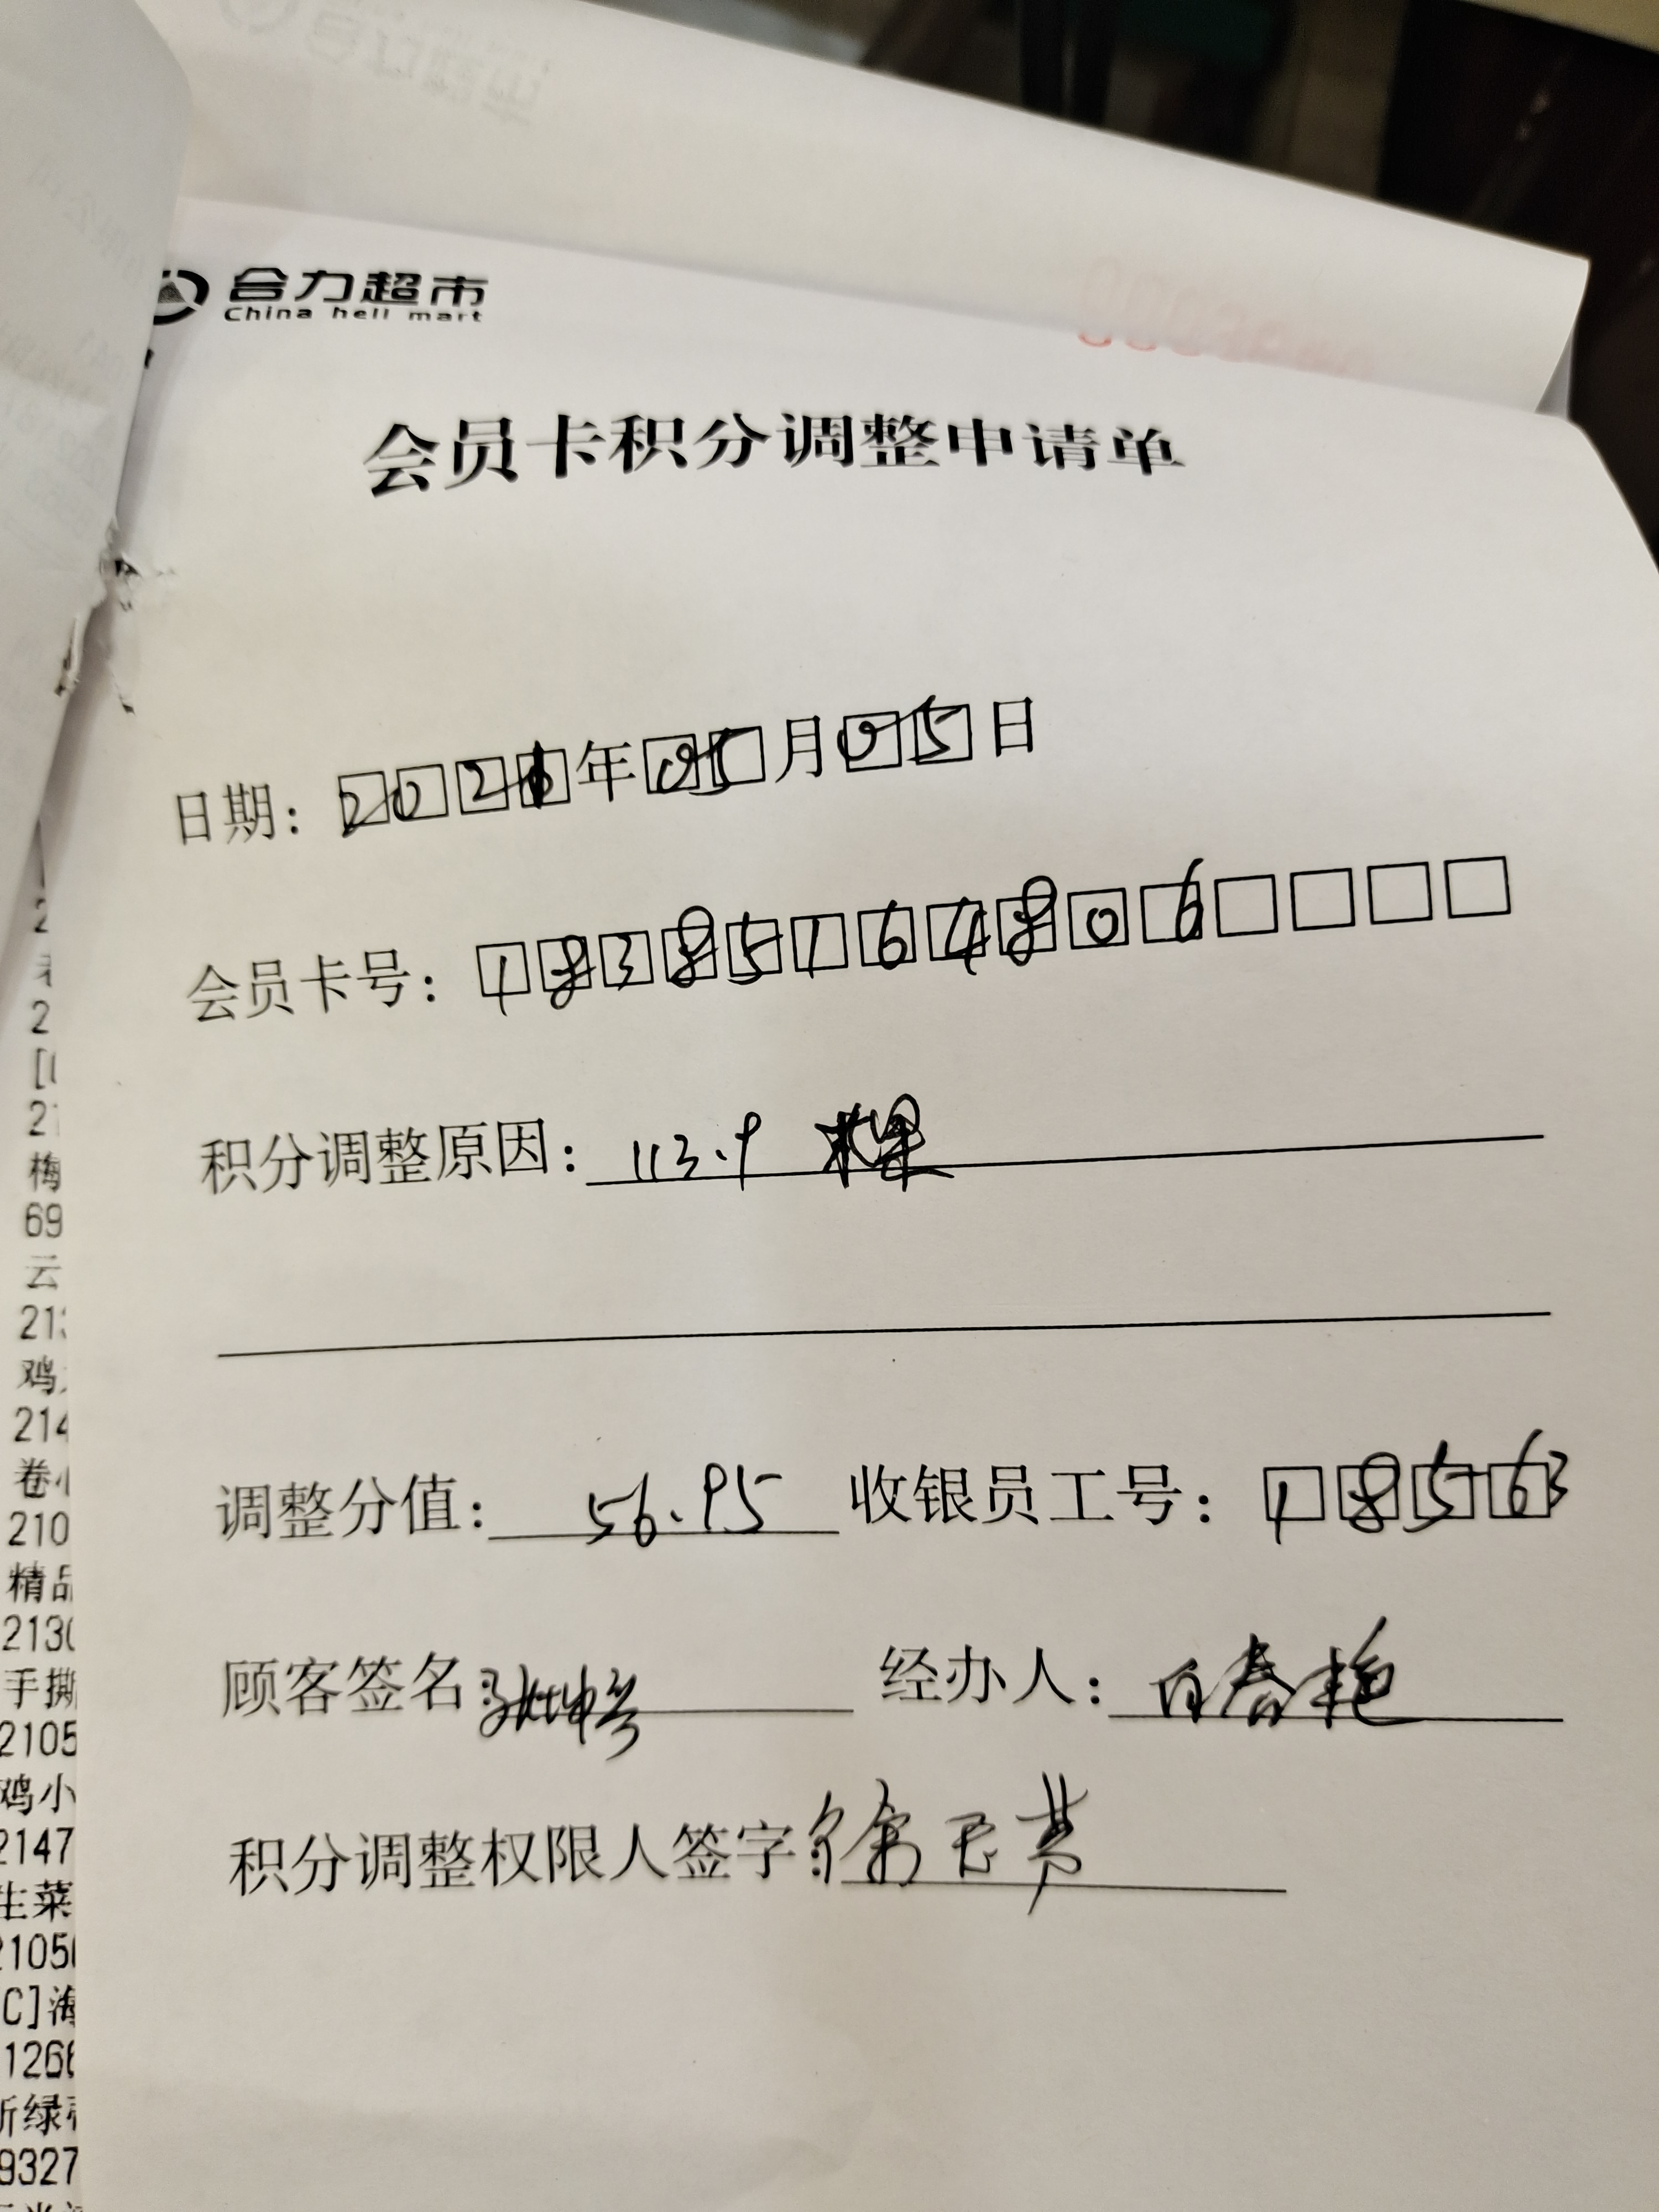 合力超市
China heli mart
会员卡积分调整申请单
日期: 2021年05月05日
会员卡号: 18385164806
积分调整原因: 113.9
调整分值: 56.95 收银员工号: 18563
顾客签名: 张坤 经办人: 白春艳
积分调整权限人签字: 徐天芬
2
2
21
梅
69
云
213
鸡
214
卷
210
精品
2130
手撕
2105
鸡小
2147
生菜
2105
C]海
1266
9327